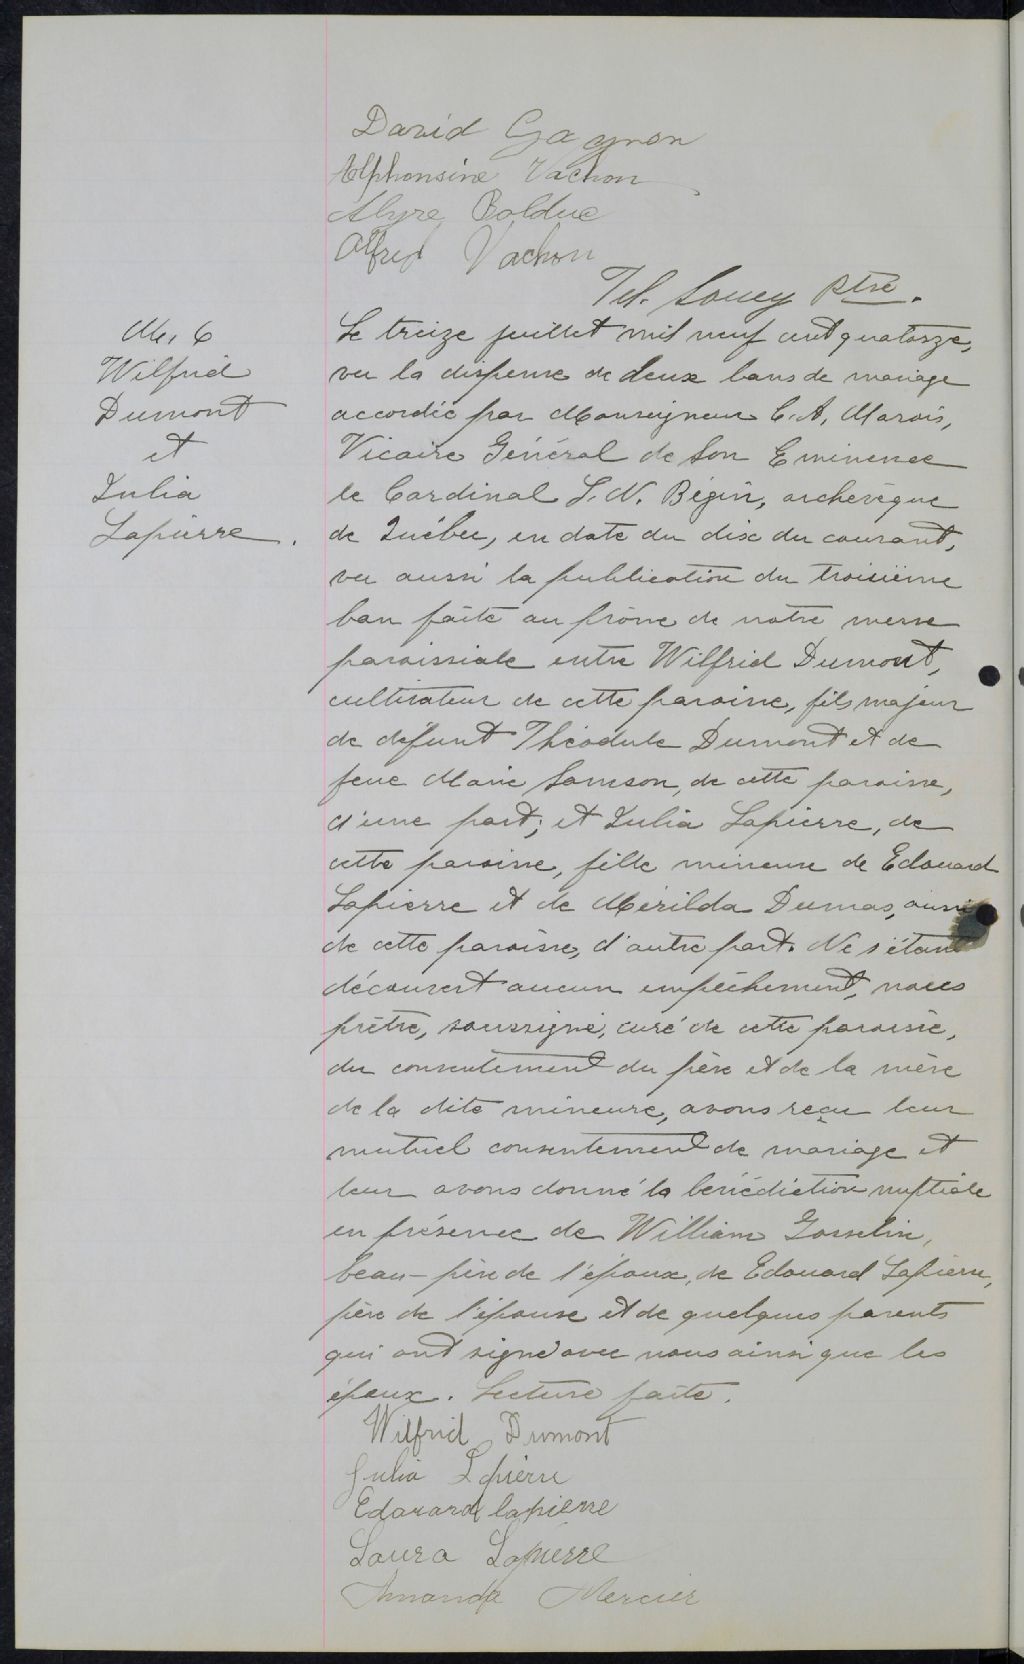 David Gagnon
Alphonsine Vachon
Alyre Bolduc
Alfred Vachon
Tél. Soucy Ptre.
M. 6
Wilfrid
Dumont
et
Julia
Lapierre.
Le treize juillet mil neuf cent quatorze,
vu la dispense de deux bans de mariage
accordée par Monseigneur C. A. Marois,
Vicaire Général de Son Eminence
le Cardinal L. N. Bégin, archevêque
de Québec, en date du dix du courant,
vu aussi la publication du troisième
ban faite au prône de notre messe
paroissiale entre Wilfrid Dumont,
cultivateur de cette paroisse, fils majeur
de défunt Théodule Dumont et de
feue Marie Samson, de cette paroisse,
d'une part; et Julia Lapierre, de
cette paroisse, fille mineure de Edouard
Lapierre et de Mérilda Dumas, aussi
de cette paroisse, d'autre part. Ne s'étant
découvert aucun empêchement, nous
prêtre, soussigné, curé de cette paroisse,
du consentement du père et de la mère
de la dite mineure, avons reçu leur
mutuel consentement de mariage et
leur avons donné la bénédiction nuptiale
en présence de William Gosselin,
beau-père de l'époux, de Edouard Lapierre,
père de l'épouse et de quelques parents
qui ont signé avec nous ainsi que les
époux. Lecture faite.
Wilfrid Dumont
Julia Lapierre
Edouard lapierre
Laura Lapierre
Amanda Mercier